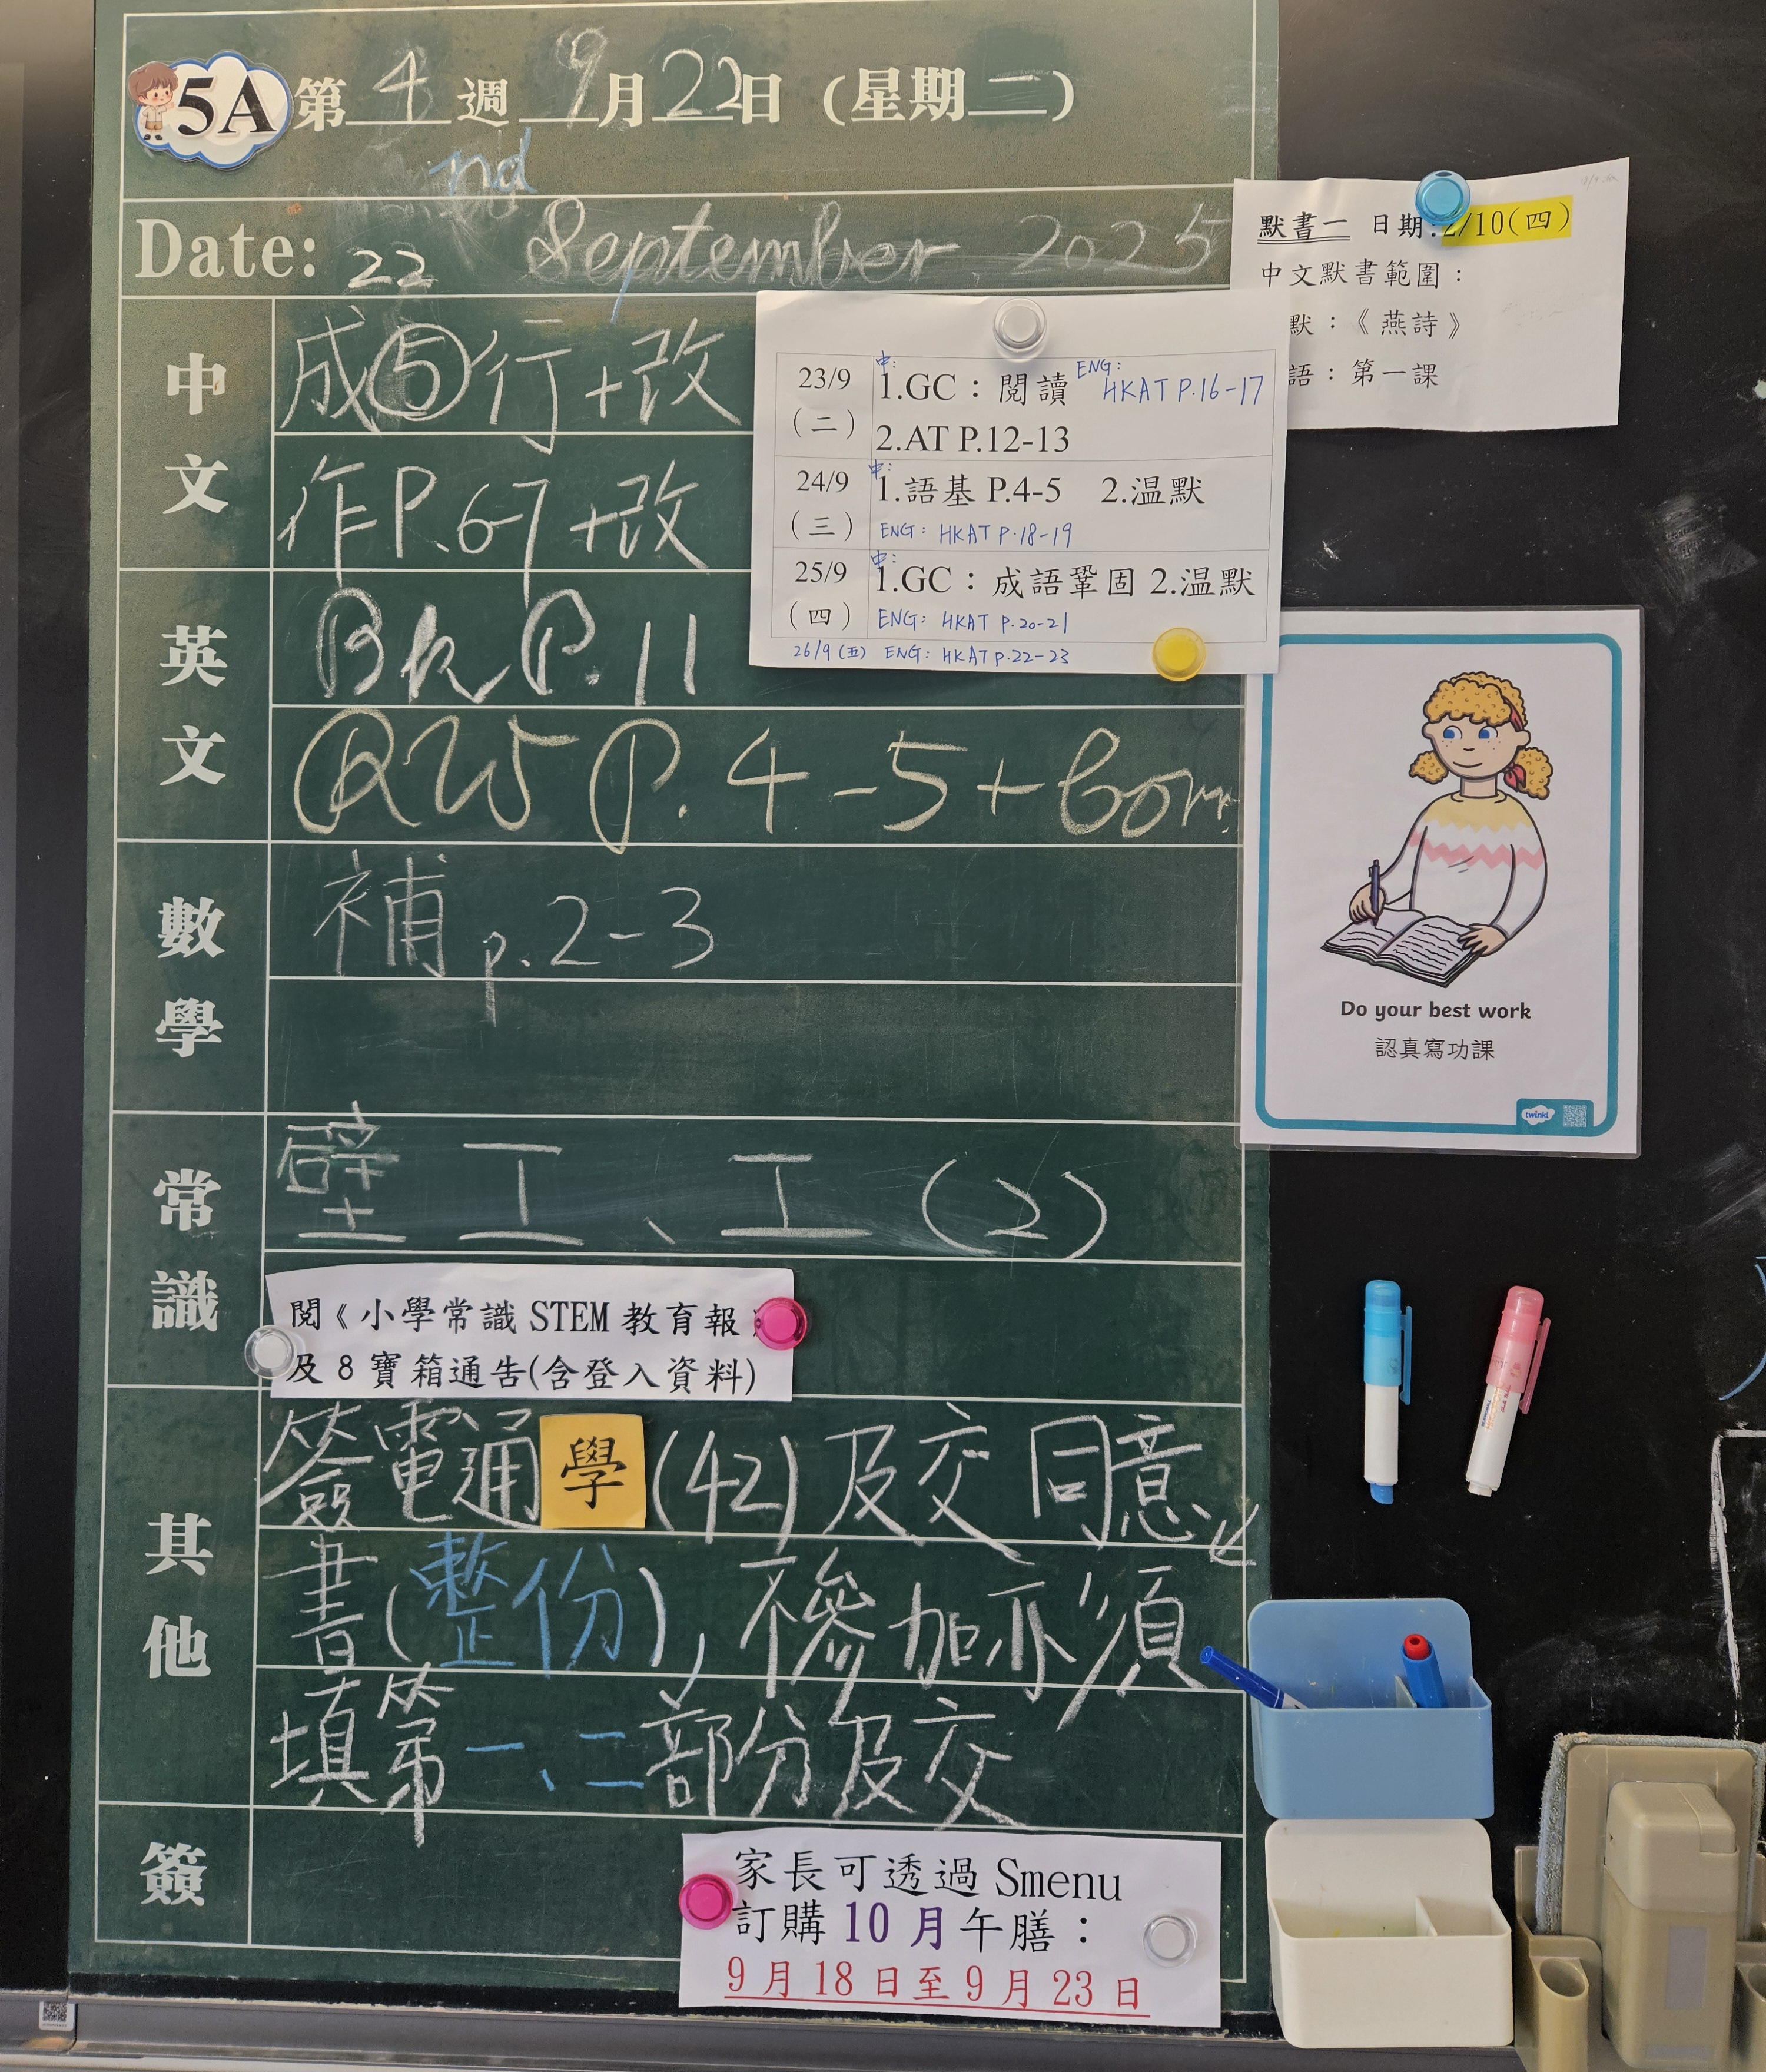 5A 第 4 週 9 月 22 日 (星期二)
nd
Date: 22 September, 2025
中文
成⑤行+改
作P.6-7+改
英文
Bk P.11
RW5 P.4-5+Corr.
數學
補 p.2-3
常識
壁工、工(2)
閱《小學常識 STEM 教育報》
及 8 寶箱通告(含登入資料)
其他
簽電通學(42)及交同意
書(整份),不參加亦須
填第一、二部分及交
簽
家長可透過 Smenu
訂購 10 月午膳:
9 月 18 日至 9 月 23 日
23/9 (二)
中: 1.GC:閱讀 ENG: HKAT P.16-17
2.AT P.12-13
24/9 (三)
中: 1.語基 P.4-5 2.温默
ENG: HKAT P.18-19
25/9 (四)
中: 1.GC:成語鞏固 2.温默
ENG: HKAT P.20-21
26/9 (五) ENG: HKAT P.22-23
默書一 日期:2/10(四)
中文默書範圍:
默:《燕詩》
語:第一課
Do your best work
認真寫功課
twinkl